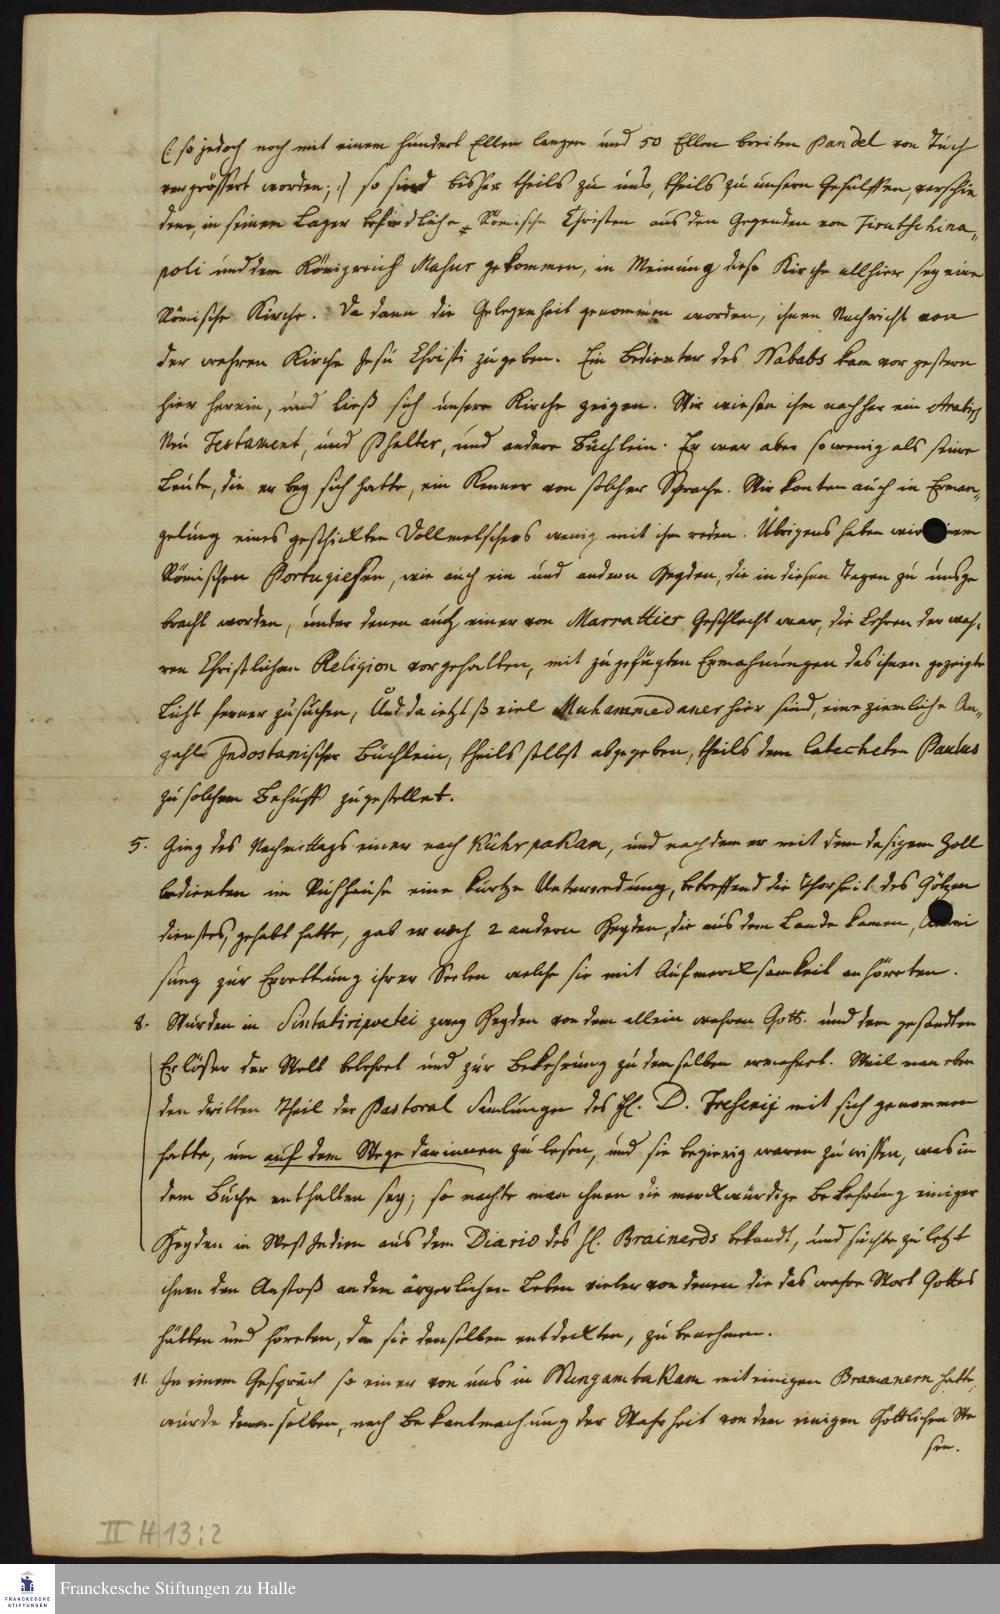 (: so jedoch noch mit einem hundert Ellen langen und 50 Ellen breiten Pandel von Tuch
vergrössert worden; :) so sind bisher theils zu uns, theils zu unsern Gehülffen, verschie
dene, in seinem Lager befindliche Römische Christen aus den Gegenden von Tirutschina„
poli und dem Königreich Maßur gekommen, in Meinung diese Kirche allhier sey eine
Römische Kirche. Da dann die Gelegenheit genommen worden, ihnen Nachricht von
der wahren Kirche Jesu Christi zu geben. Ein Bedienter des Nababs kam vor gestern
hier herein, und ließ sich unsere Kirche zeigen. Wir wiesen ihm nachher ein Arabisch
Neu Testament, und Psalter, und andere Büchlein. Er war aber so wenig als seine
Leute, die er bey sich hatte, ein Kenner von solcher Sprache. Wir konten auch in Erman„
gelung eines geschickten Dollmetschers wenig mit ihm reden. Übrigens haben wir einem
Römischen Portugiesen, wie auch ein und andern Heyden, die in diesen Tagen zu uns ge
bracht worden, unter denen auch einer von Marrattier Geschlecht war, die Lehren der wah„
ren Christlichen Religion vorgehalten, mit zugefügten Ermahnungen das ihnen gezeigte
Licht ferner zu suchen, Und da ietzt so viel Muhammedaner hier sind, eine ziemliche An„
zahl Indostanischer Büchlein, theils selbst abgegeben, theils dem Catecheten Paulus
zu solchem Behuff zugestellet.
5. Ging des Nachmittags einer nach Kührpakam, und nachdem er mit dem dasigen Zoll
bedienten im Ruhhause eine kurtze Unterredung, betreffend die Thorheit des Götzen
dienstes, gehabt hatte, gab er noch 2 andern Heyden, die aus dem Lande kamen, Anwei
sung zur Errettung ihrer Seelen welche sie mit Aufmercksamkeit anhöreten.
8. Wurden in Sintatiripetei zwey Heyden von dem allein wahren Gott und dem gesandten
Erlöser der Welt belehret und zur Bekehrung zu demselben ermahnet. Weil man eben
den dritten Theil der Pastoral Samlungen des H. D. Fresenij mit sich genommen
hatte, um auf dem Wege darinnen zu lesen, und sie begierig waren zu wissen, was in
dem Buche enthalten sey; so machte man ihnen die merckwürdige Bekehrung einiger
Heyden in West Indien aus dem Diario des H. Brainerds bekandt, und suchte zu letzt
ihnen den Anstoß an dem ärgerlichen Leben vieler von denen die das wahre Wort Gottes
hätten und höreten, den sie denselben entdeckten, zu benehmen.
11. In einem Gespräch so einer von uns in Nungambakam mit einigen Bramanern hatte,
wurde denenselben, nach Bekantmachung der Wahrheit von dem einigen Göttlichen We
sen.
II H 13:2
FRANCKESCHE
STIFTUNGEN
Franckesche Stiftungen zu Halle